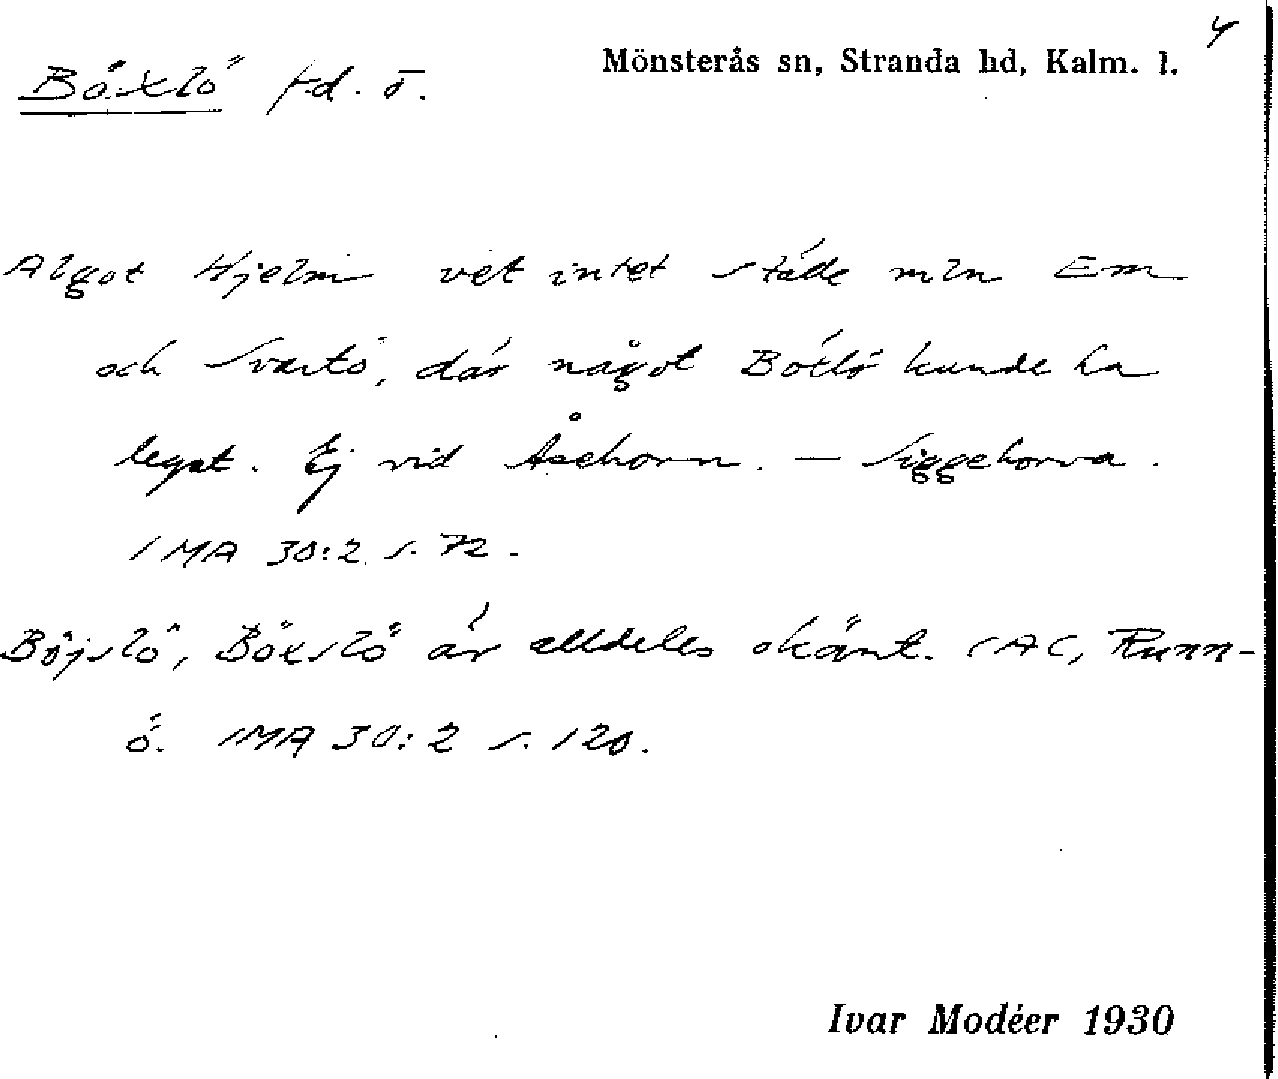 4
Mönsterås sn, Stranda hd, Kalm. l.
Böxlö fd. ö.
Algot Hjelm vet intet ställe mln Em
och Svartö, där något Bötlö kunde ha
legat. Ej vid Åsehorn. — Siggehorva.
IMA 30:2 s. 72.
Böjslö, Böxslö är alldeles okänt. CAC, Runn-
ö. IMA 30:2 s. 120.
Ivar Modéer 1930